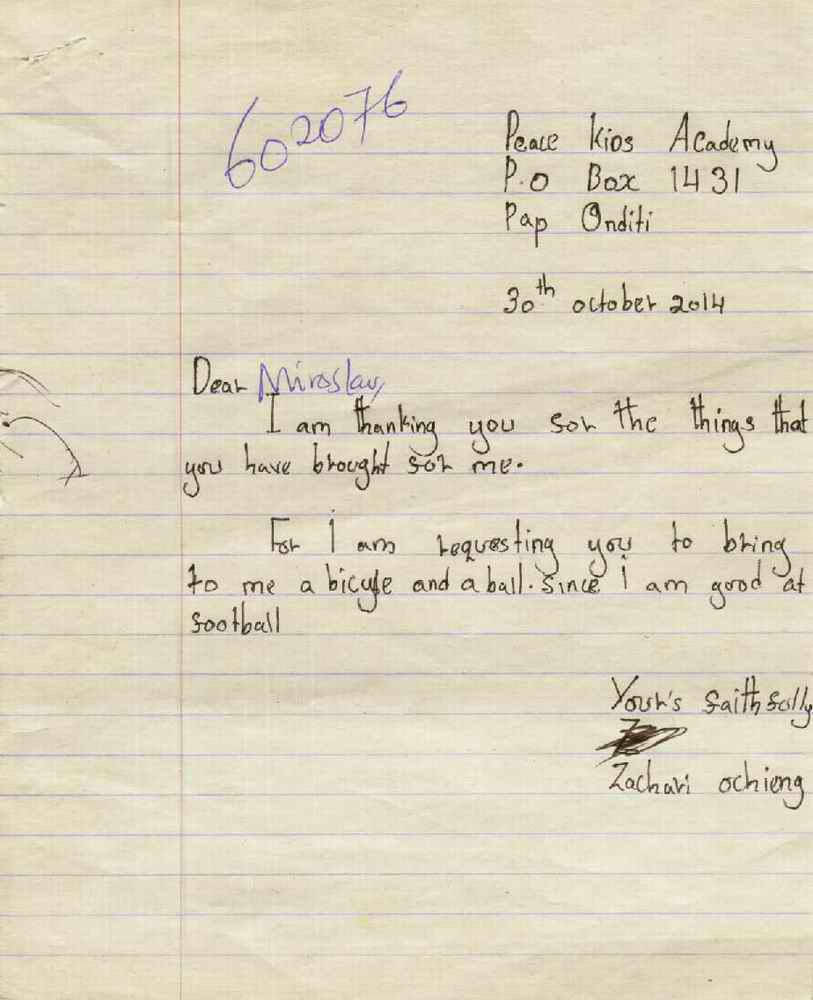 602076
Peace Kids Academy
P.O Box 1431
Pap Onditi
30th october 2014
Dear Miroslav,
I am thanking you for the things that
you have brought for me.
For I am requesting you to bring
to me a bicycle and a ball. Since i am good at
football
Your's faithfully
Zachari ochieng